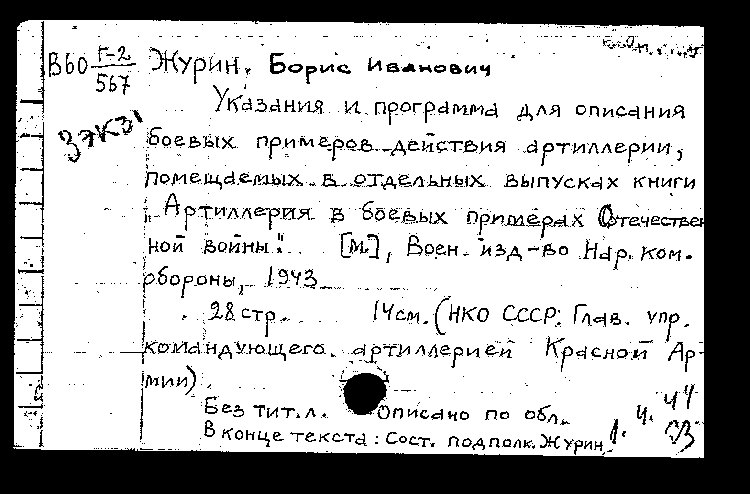 В60 Г-2/567 Журин, Борис Иванович
Указания и программа для описания
3 экз! боевых примеров действия артиллерии,
помещаемых в отдельных выпусках книги
"Артиллерия в боевых примерах Отечествен
ной войны". [М.], Воен. изд-во Нар. ком.
обороны, 1943
28 стр. 14 см. (НКО СССР. Глав. упр.
командующего артиллерией Красной Ар-
мии).
Без тит. л. Описано по обл.
В конце текста: Сост. подполк. Журин
1. 4. 44